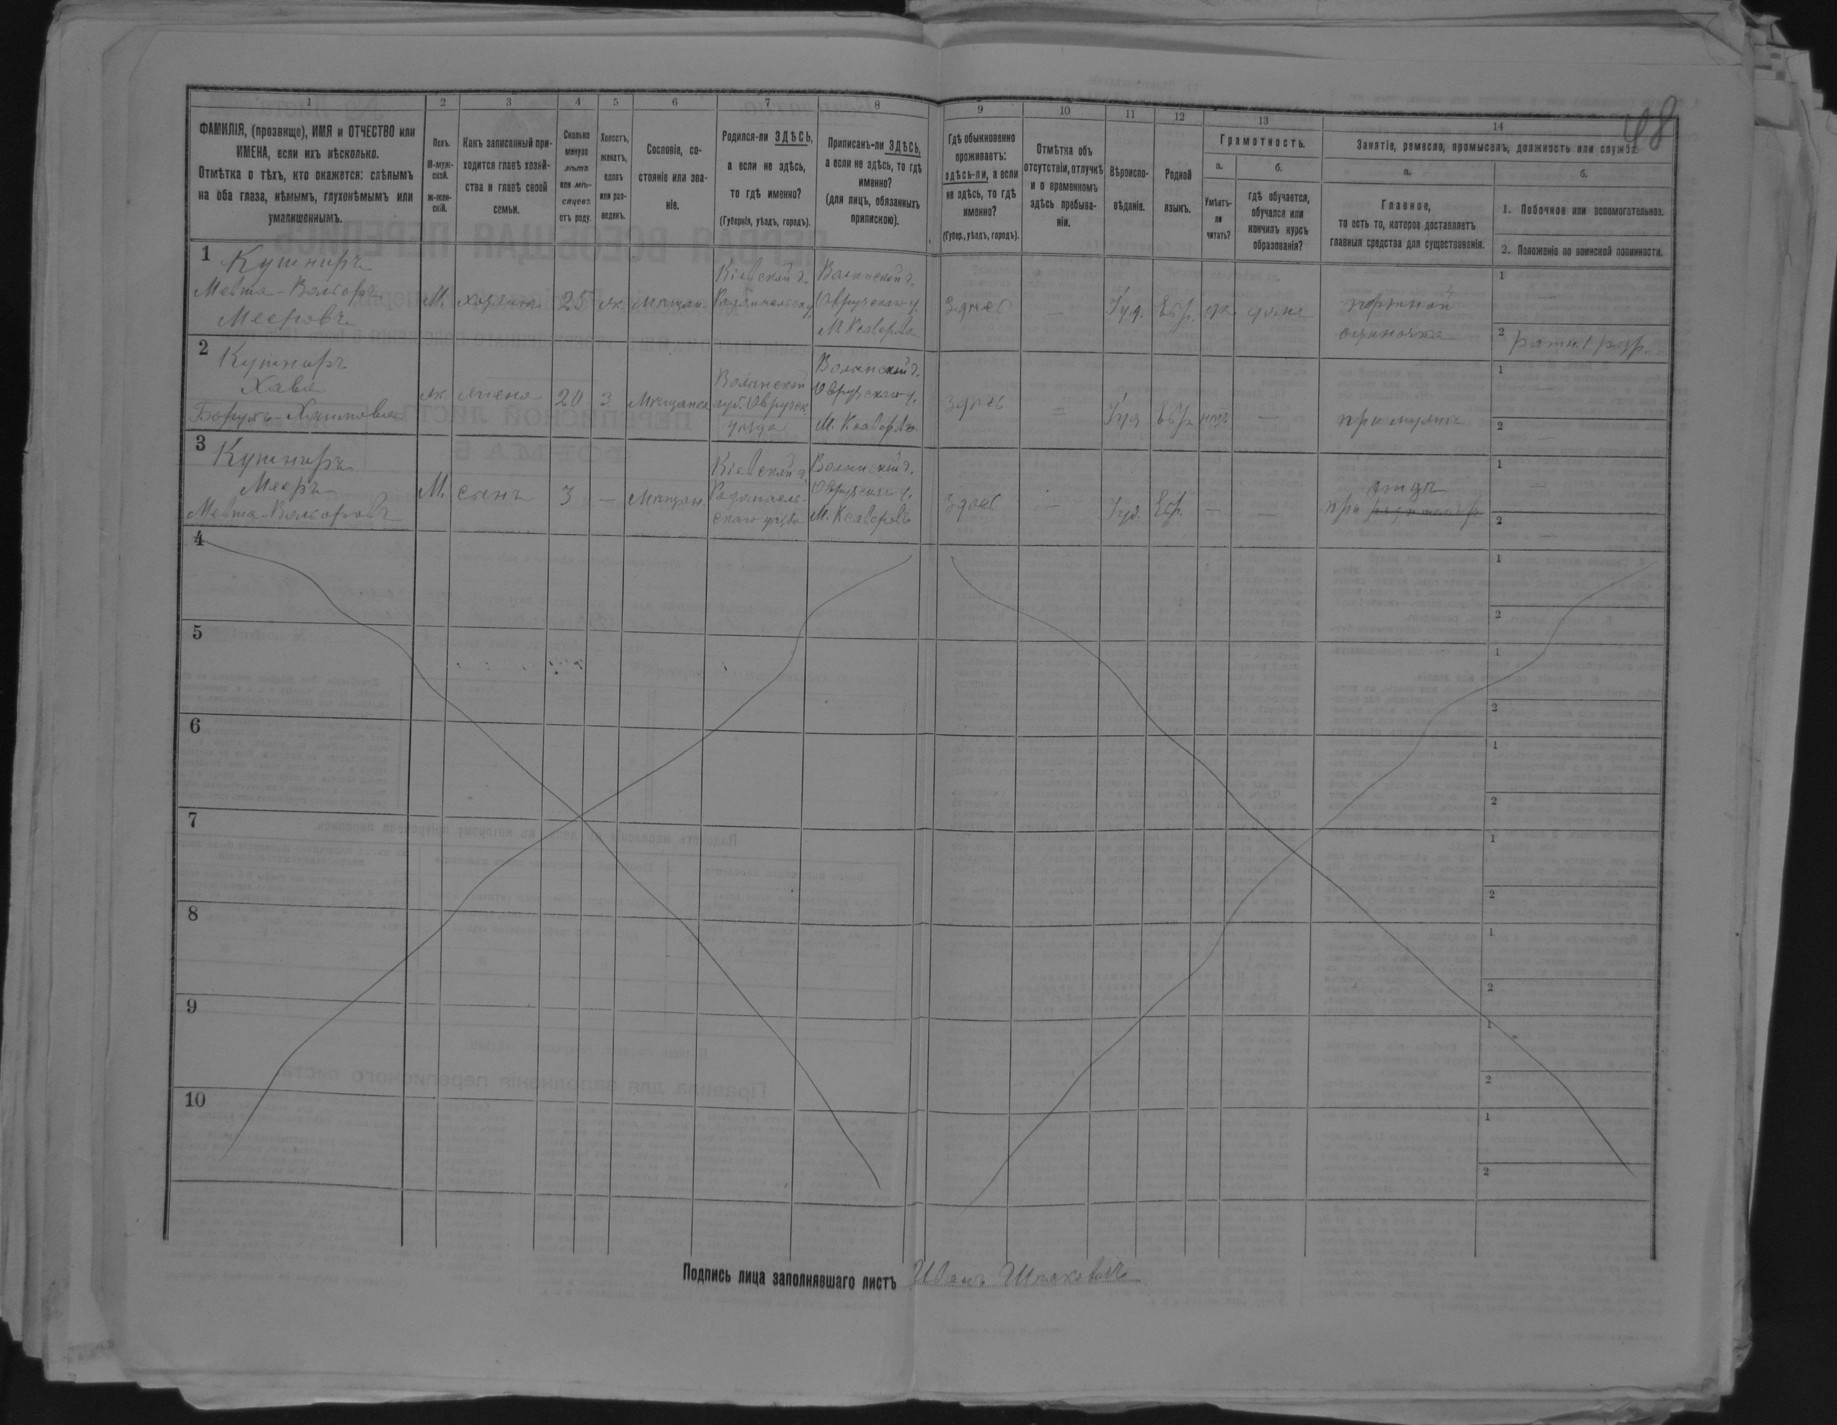 48
1 2 3 4 5 6 7 8 9 10 11 12 13 14
ФАМИЛІЯ, (прозвище), ИМЯ и ОТЧЕСТВО или
ИМЕНА, если ихъ нѣсколько.
Отмѣтка о тѣхъ, кто окажется: слѣпымъ
на оба глаза, нѣмымъ, глухонѣмымъ или
умалишеннымъ.
Полъ.
М-муж-
ской.
Ж-жен-
скій.
Какъ записанный при-
ходится главѣ хозяй-
ства и главѣ своей
семьи.
Сколько
минуло
лѣтъ
или мѣ-
сяцевъ
отъ роду.
Холостъ,
женатъ,
вдовъ
или раз-
веденъ.
Сословіе, со-
стояніе или зва-
ніе.
Родился-ли ЗДѢСЬ,
а если не здѣсь,
то гдѣ именно?
(Губернія, уѣздъ, городъ).
Приписанъ-ли ЗДѢСЬ,
а если не здѣсь, то гдѣ
именно?
(для лицъ, обязанныхъ
припискою).
Гдѣ обыкновенно
проживаетъ:
здѣсь-ли, а если
не здѣсь, то гдѣ
именно?
(Губер., уѣздъ, городъ).
Отмѣтка объ
отсутствіи, отлучкѣ
и о временномъ
здѣсь пребыва-
ніи.
Вѣроиспо-
вѣданіе.
Родной
языкъ.
Грамотность.
а.
Умѣетъ-
ли
читать?
б.
гдѣ обучается,
обучался или
кончилъ курсъ
образованія?
Занятіе, ремесло, промыселъ, должность или служба.
а.
Главное,
то есть то, которое доставляетъ
главныя средства для существованія.
б.
1. Побочное или вспомогательное.
2. Положеніе по воинской повинности.
1 Кушниръ
Мееровъ
М. хозяинъ 25 ж. мѣщан.
Кіевской г.
Волынской г.
Овручскаго у.
здѣсь — Іуд. Евр. да дома
портной
одиночка
1 —
2 ратн. 1 разр.
2 Кушниръ
Хава
ж. жена 20 з. Мѣщанка
Волынской
губ. Овручск.
уѣзда
Волынской г.
Овручскаго у.
здѣсь — Іуд. Евр. нѣтъ —
при мужѣ
1 —
2 —
3 Кушниръ
Мееръ
М. сынъ 3 — Мѣщан.
Кіевской г.
Радомысль-
скаго уѣзда
Волынской г.
Овручскаго у.
здѣсь — Іуд. Евр. — —
при отцѣ
1 —
2 —
4
1
2
5
1
2
6
1
2
7
1
2
8
1
2
9
1
2
10
1
2
Подпись лица заполнявшаго листъ Иванъ